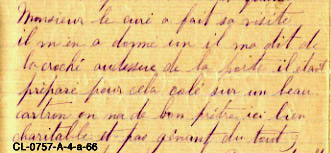 Monsieur le curé a fait sa visite
il m'en a donné un il ma dit de
la croché audessure de la porte il était
préparé pour cela colé sur un beau
cartron on na de bon prêtre ici bien
charitable et pas gênant du tout
CL-0757-A-4-a-66